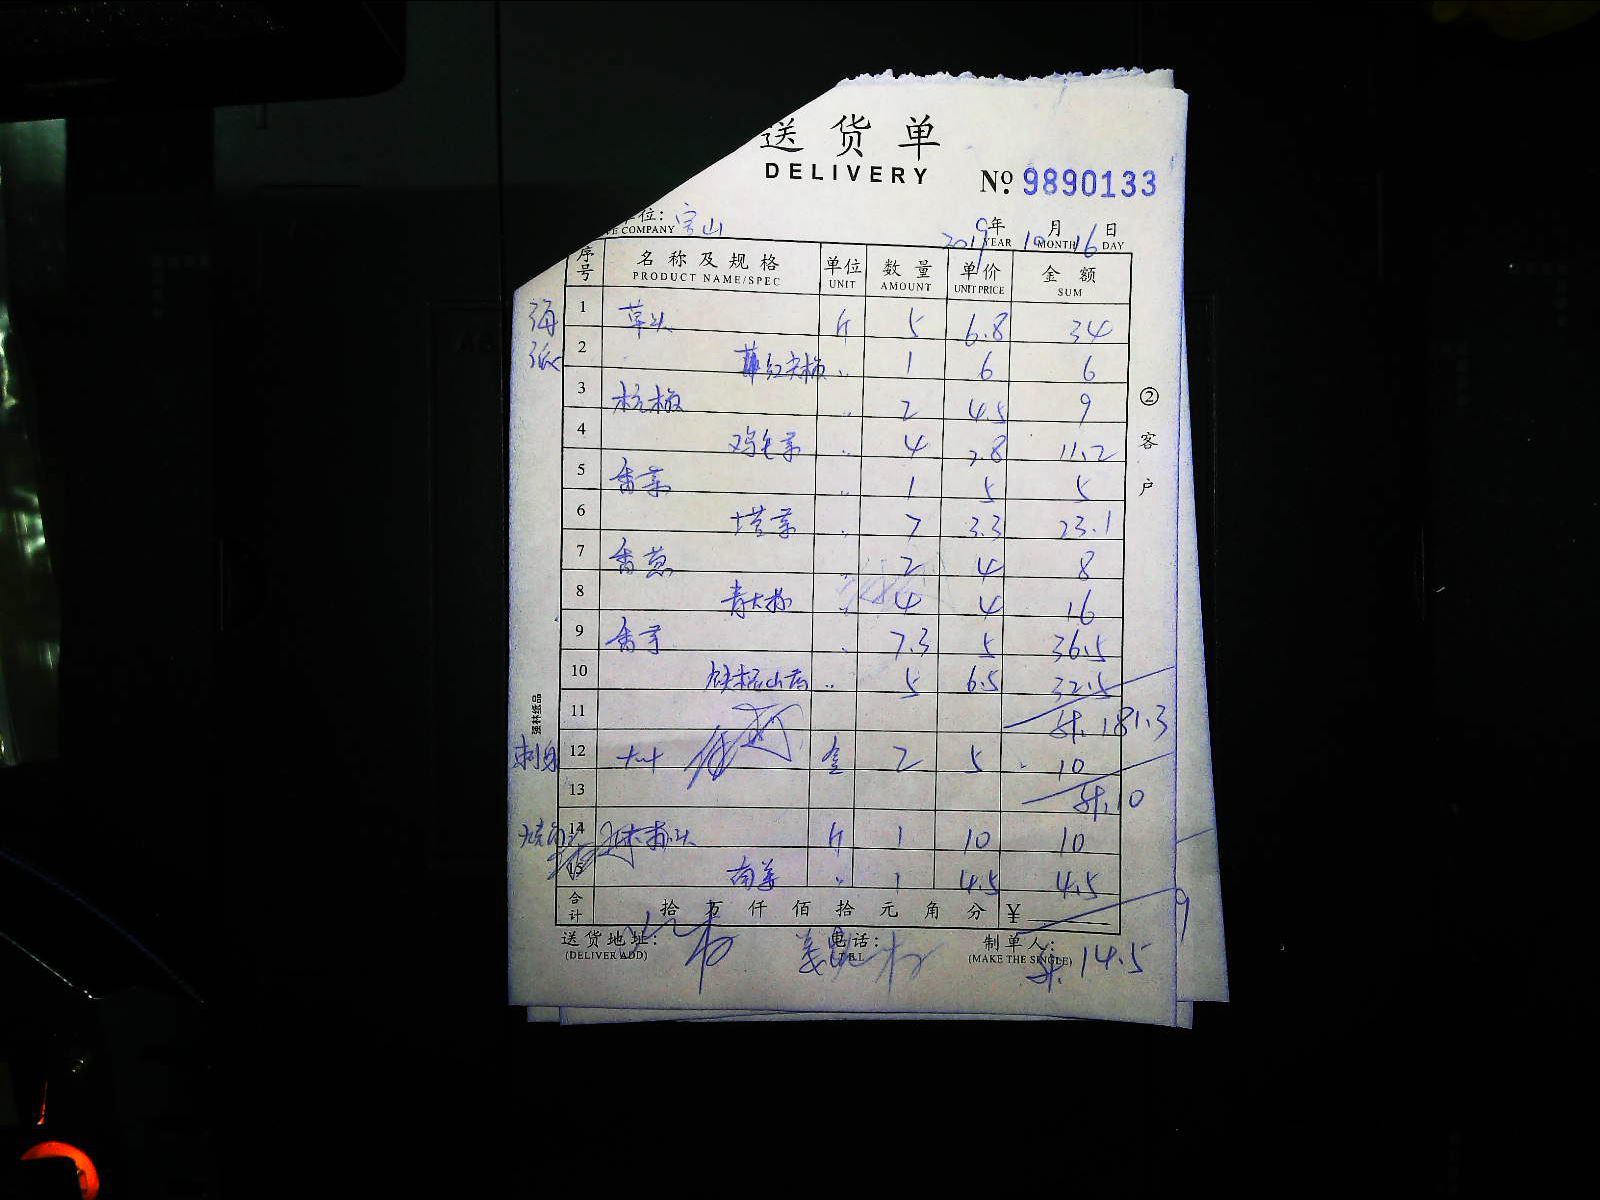 送货单
DELIVERY
No. 9890133
单位: 宝山
COMPANY
2019年 10月 16日
YEAR MONTH DAY
序号 名称及规格 单位 数量 单价 金额
PRODUCT NAME/SPEC UNIT AMOUNT UNIT PRICE SUM
1 草头 斤 5 6.8 34
2 红尖椒 〃 1 6 6
3 杭椒 〃 2 4.5 9
4 鸡毛菜 〃 4 2.8 11.2
5 香菜 〃 1 5 5
6 塔菜 〃 7 3.3 23.1
7 香葱 〃 2 4 8
8 青大椒 〃 4 4 16
9 香芋 〃 7.3 5 36.5
10 铁棍山药 〃 5 6.5 32.5
11 计. 181.3
刺身 12 盒 2 5 10
13 计. 10
14 斤 1 10 10
15 南姜 〃 1 4.5 4.5
合计 拾万仟佰拾元角分 ¥
送货地址: 电话: 制单人:
(DELIVER ADD) TEL (MAKE THE SINGLE)
计. 14.5
②客户
强林纸品